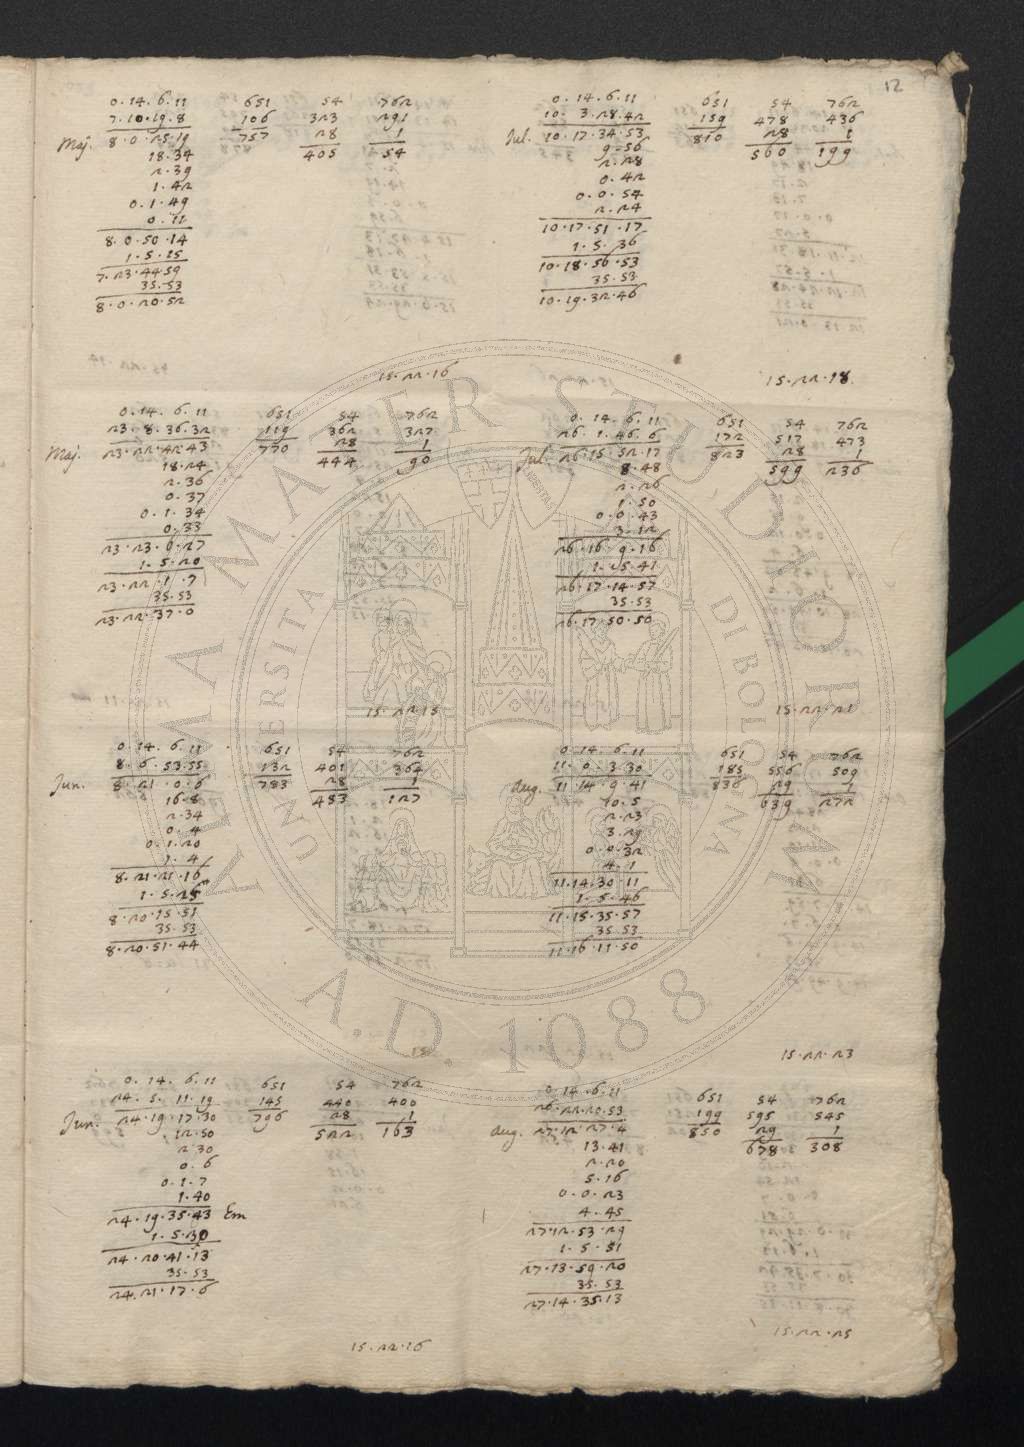 12
0.14.6.11 651 54 762
7.10.19.8 106 323 291
Maj. 8.0.25.19 757 28 1
18.34 405 54
2.39
1.42
0.1.49
0.11
8.0.50.14
1.5.15
7.23.44.59
35.53
8.0.20.52
15.22.16
0.14.6.11 651 54 762
23.8.36.32 119 362 327
Maj. 23.22.42.43 770 28 1
18.24 444 90
2.36
0.37
0.1.34
0.33
23.23.6.27
1.5.20
23.22.1.7
35.53
23.22.37.0
15.22.13
0.14.6.11 651 54 762
8.6.53.55 132 401 364
Jun. 8.21.0.6 783 28 1
16.8 483 127
2.34
0.4
0.1.20
1.4
8.21.21.16
1.5.25
8.20.15.51
35.53
8.20.51.44
15
0.14.6.11 651 54 762
24.5.11.19 145 440 400
Jun. 24.19.17.30 796 28 1
12.50 522 163
2.30
0.6
0.1.7
1.40
24.19.35.43 Em
1.5.30
24.20.41.13
35.53
24.21.17.6
15.22.16
0.14.6.11 651 54 762
10.3.28.42 159 478 436
Jul. 10.17.34.53 810 28 1
9.56 560 199
2.28
0.42
0.0.54
2.24
10.17.51.17
1.5.36
10.18.56.53
35.53
10.19.32.46
15.22.18
0.14.6.11 651 54 762
26.1.46.6 172 517 473
Jul. 26.15.52.17 823 28 1
8.48 599 236
2.26
1.50
0.0.43
3.12
26.16.9.16
1.5.41
26.17.14.57
35.53
26.17.50.50
15.22.21
0.14.6.11 651 54 762
11.0.3.30 185 556 509
Aug. 11.14.9.41 836 29 1
10.5 639 272
2.23
3.29
0.0.32
4.1
11.14.30.11
1.5.46
11.15.35.57
35.53
11.16.11.50
15.22.23
0.14.6.11 651 54 762
26.22.20.53 199 595 545
Aug. 27.12.27.4 850 29 1
13.41 678 308
2.20
5.16
0.0.23
4.45
27.12.53.29
1.5.51
27.13.59.20
35.53
27.14.35.13
15.22.25
ALMA MATER STUDIORUM
A.D. 1088
UNIVERSITÀ DI BOLOGNA